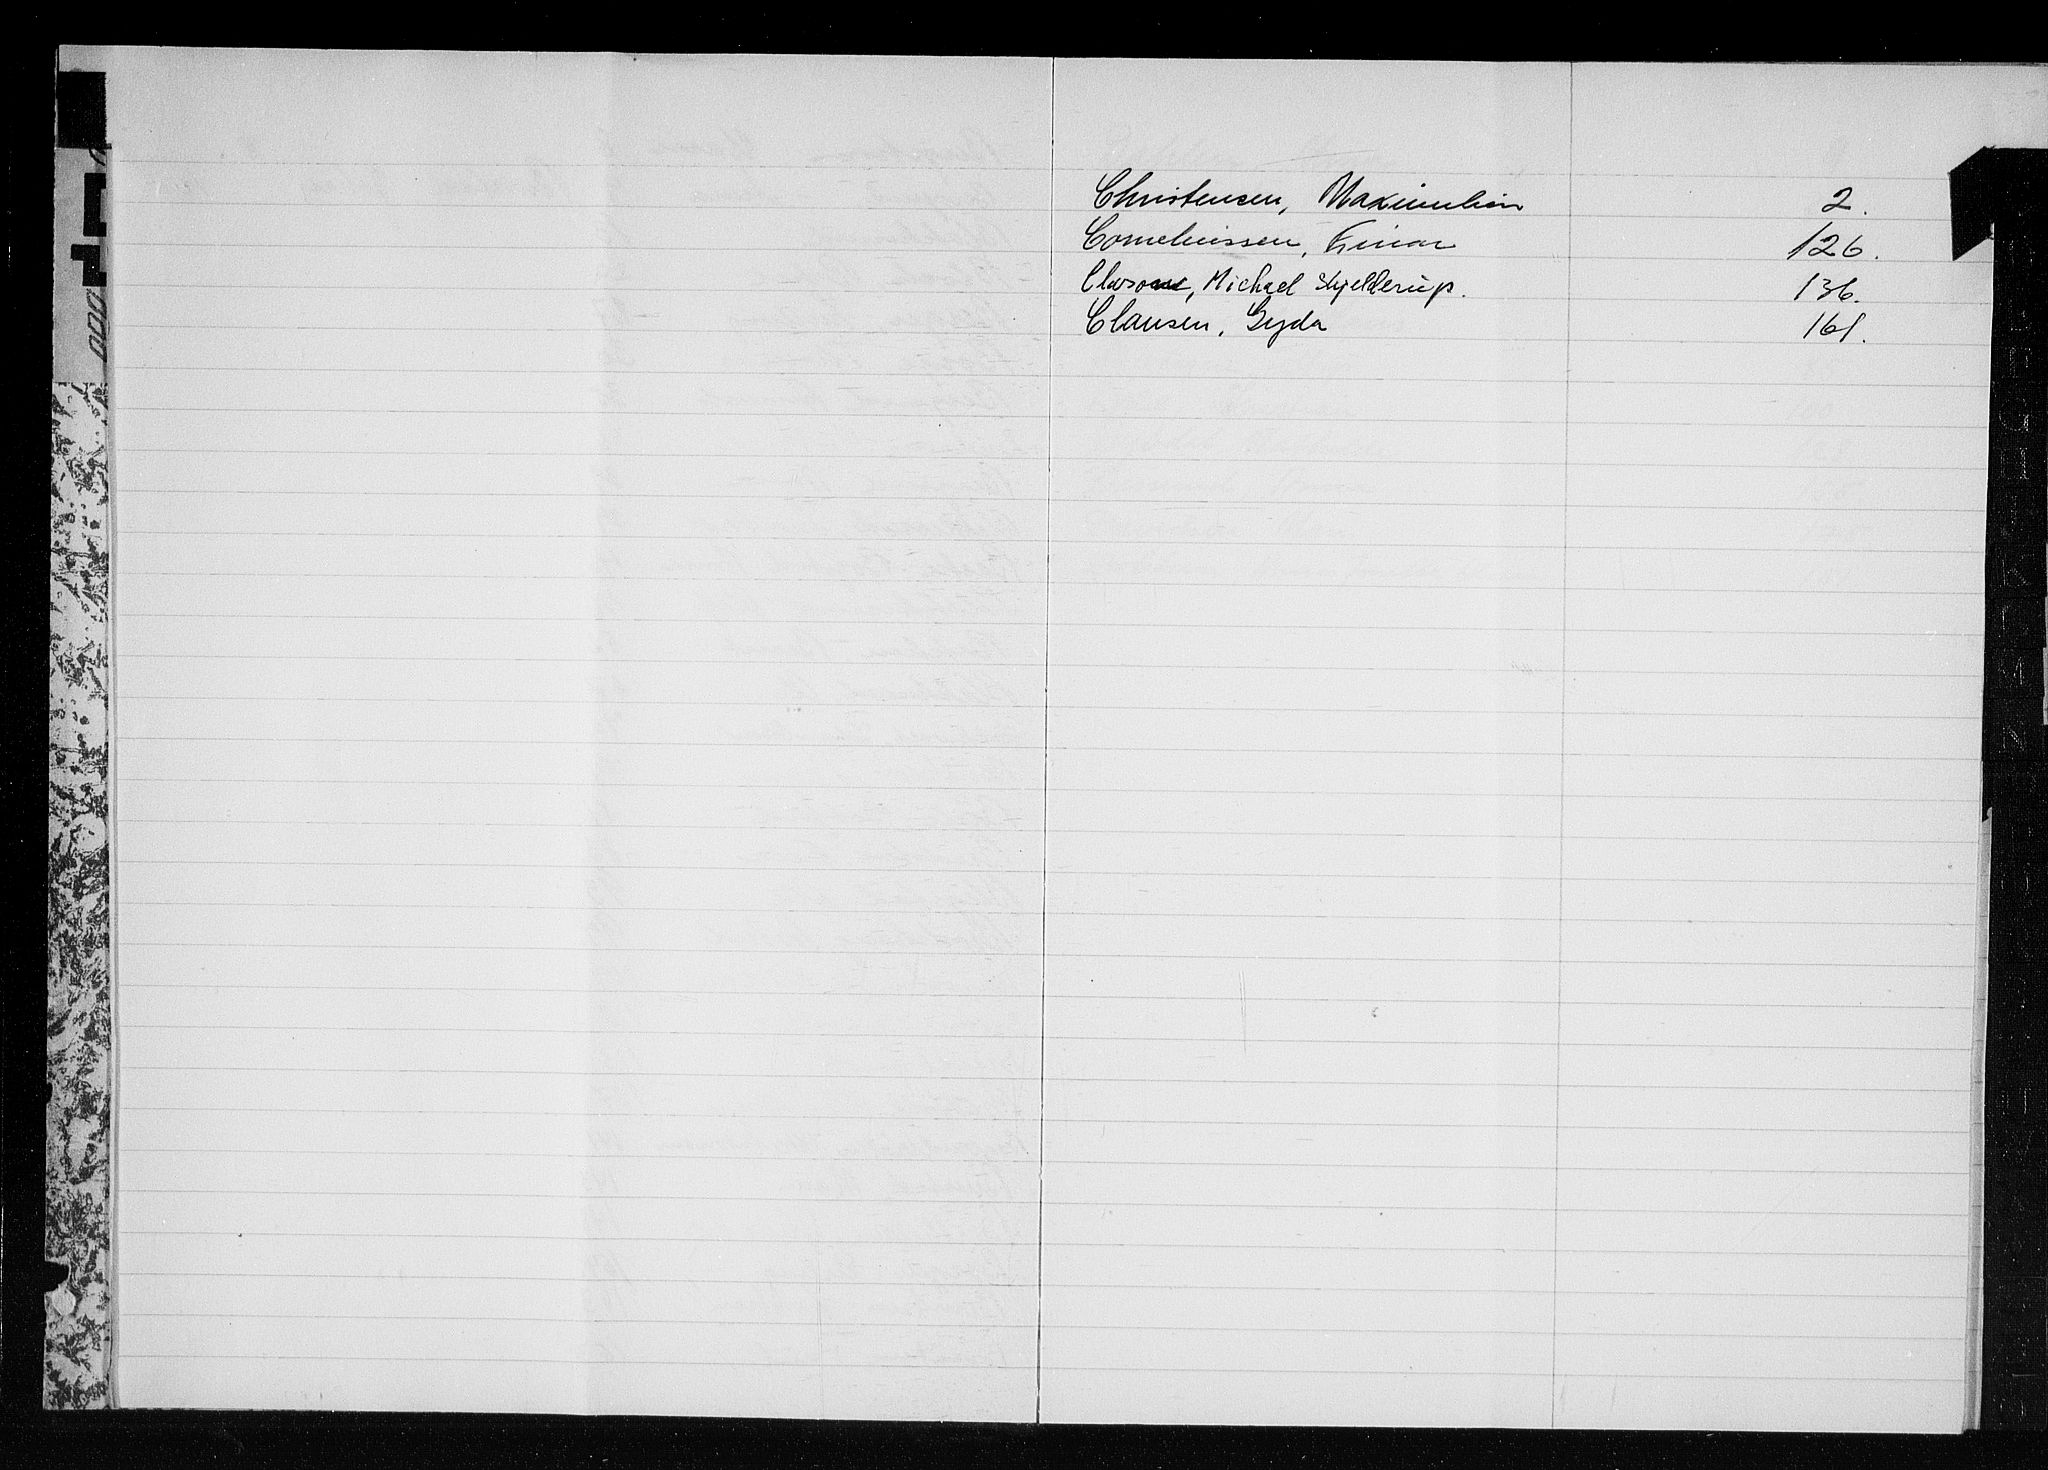 Christensen, Maximilian 2.
Corneliussen, Einar 126.
Michael Skjelderup. 136.
Clausen, Gyda 161.